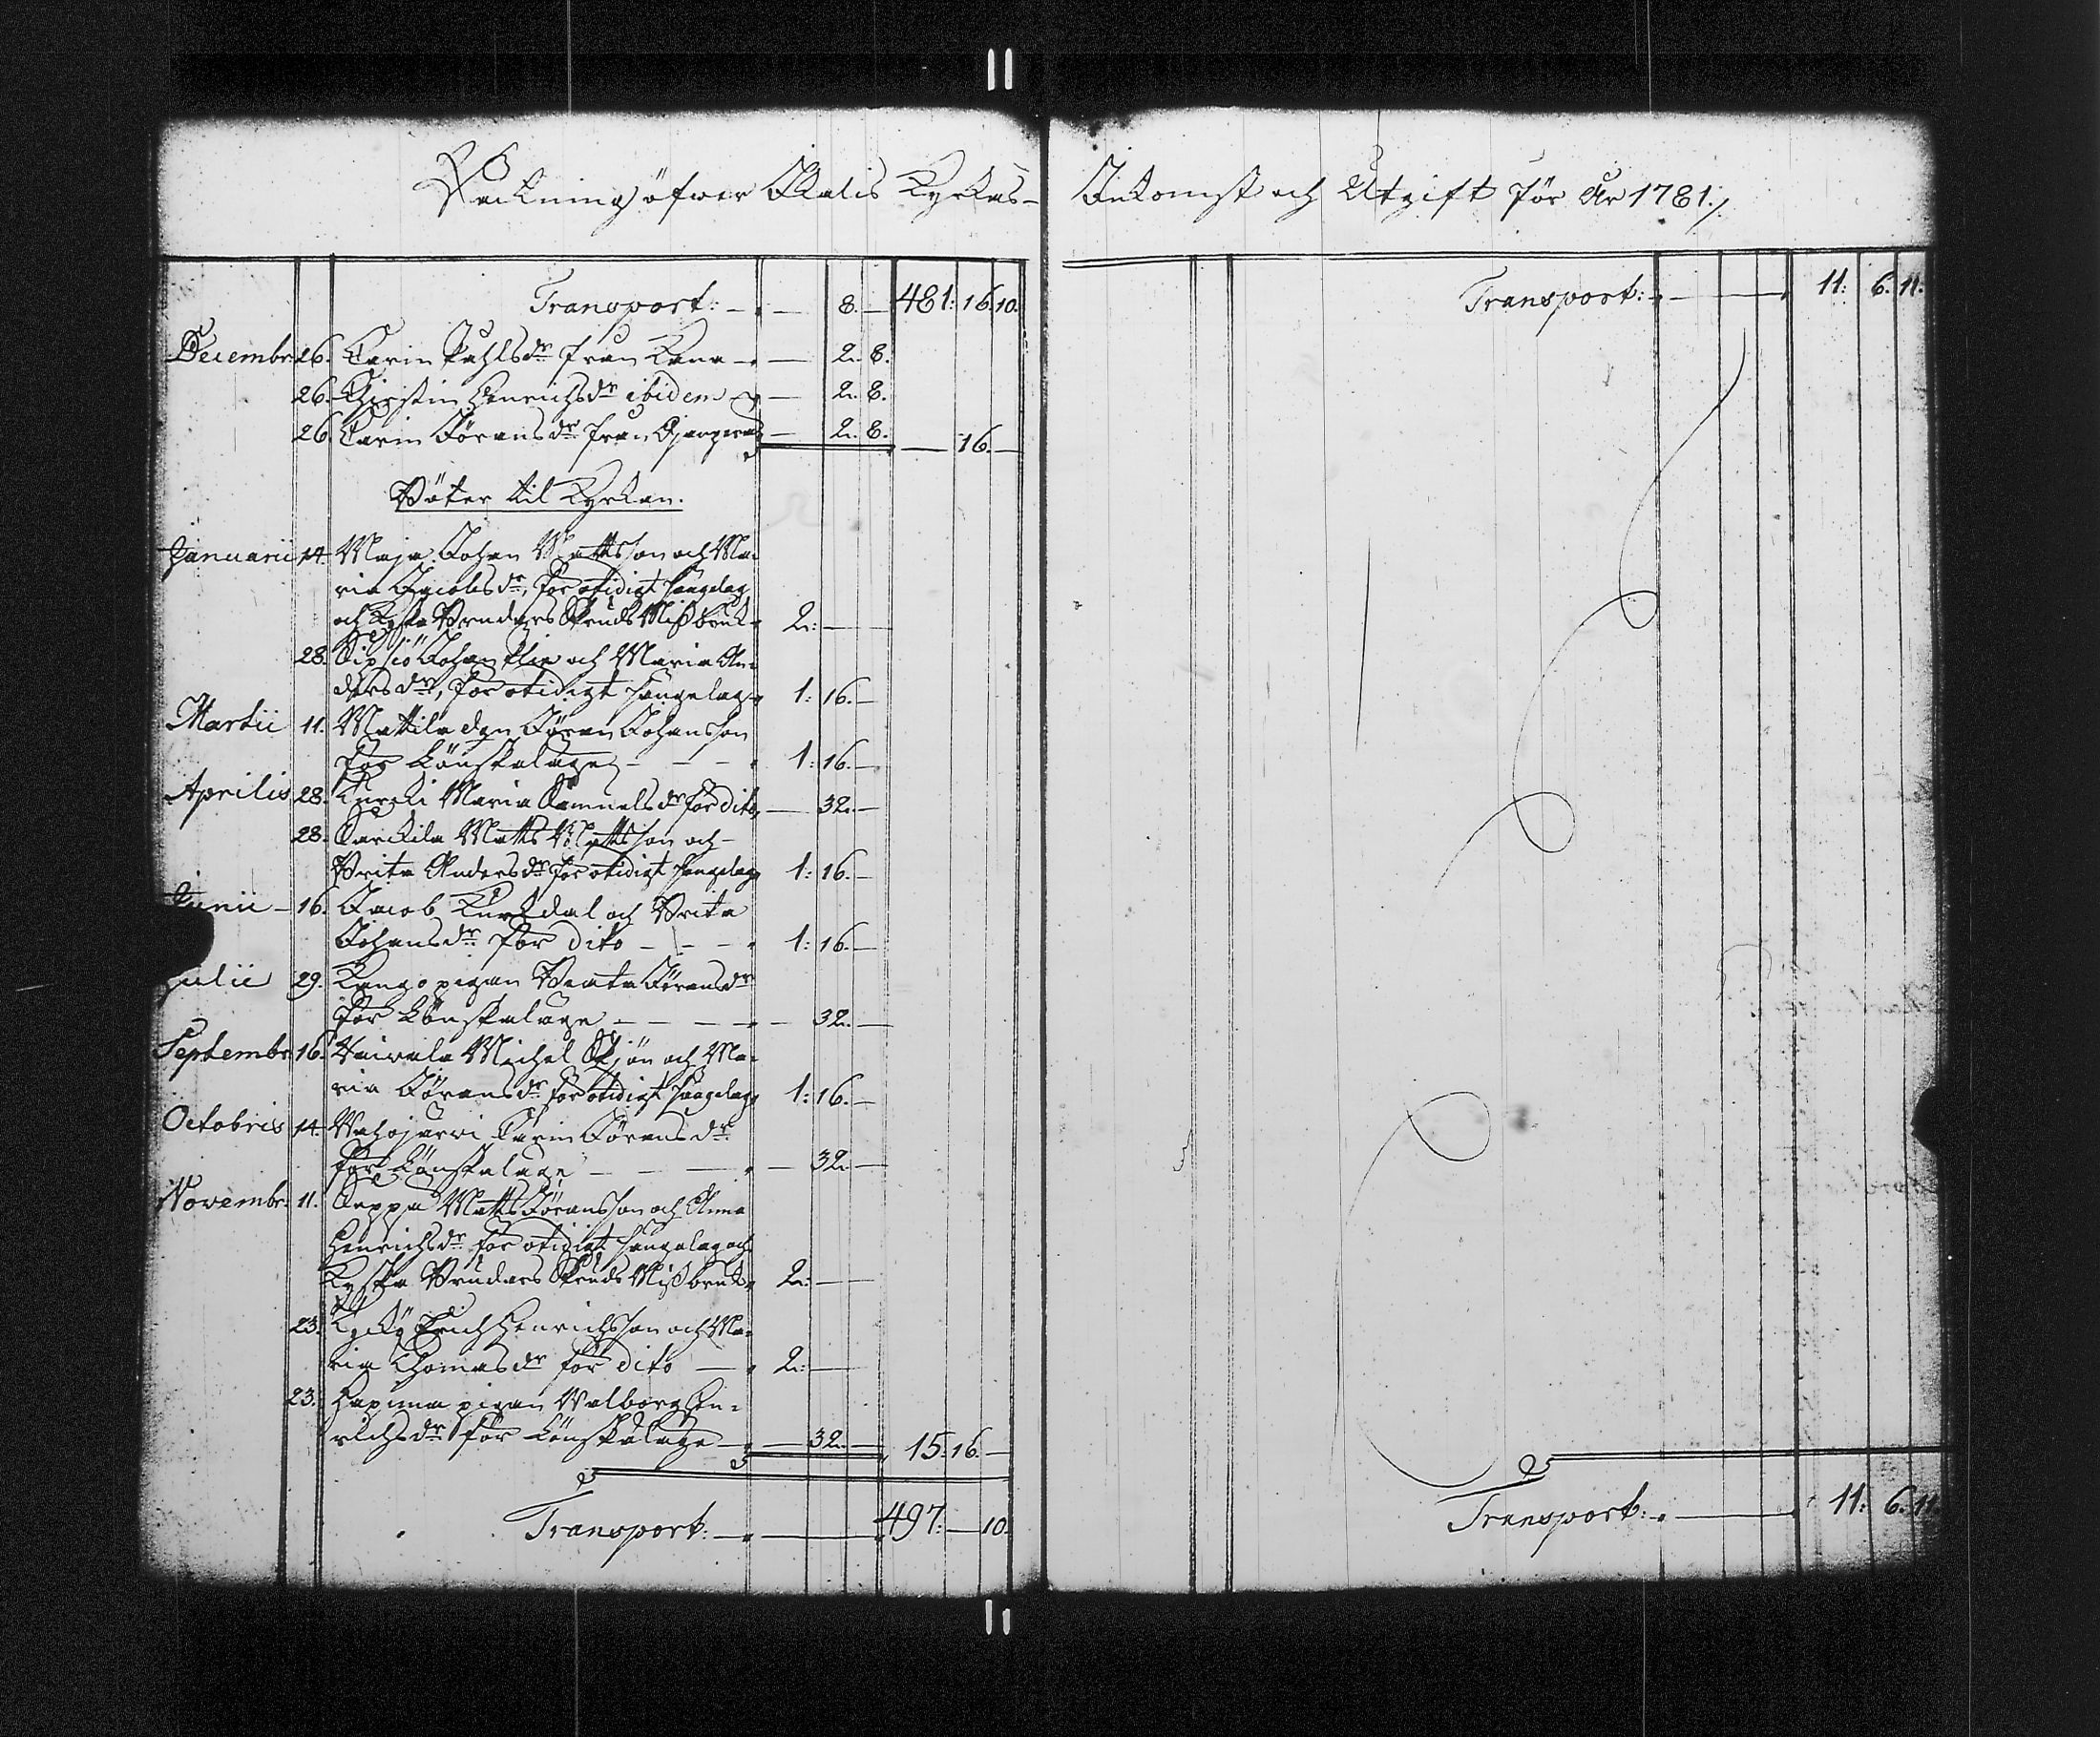 Räkning öfwer Ikalis Kyrkas
Inkomst och Utgift för År 1781./.
Transport: — 8. — 481: 16. 10.
Decembr. 26. Carin Påhlsdr från Kana — 2. 8.
26. Christin Henrichsdr ibidem — 2. 8.
26. Carin Göransdr från — 2. 8. — 16. —
Böter til Kyrkan.
Januarii 14. Maja Johan Mattsson och Ma-
ria Jacobsdr, för otidigt sängelag
och Kyska Bruders Skruds Missbruk 2: —
28. Johan och Maria An-
dersdr, för otidigt sängelag 1: 16. —
Martii 11. Mattila drn Göran Johansson
för Lönskaläge — 1: 16. —
Aprilis 28. Kurki Maria Samuelsdr för dito — 32. —
28. Sarkila Matts Mattsson och
Brita Andersdr för otidigt sängelag 1: 16. —
Junii — 16. Jacob Kurkdal och Brita
Johansdr för dito — 1: 16. —
Julii 29. Kango pigan Beata Göransdr
för Lönskaläge — 32. —
Septembr. 16. Michel och Ma-
ria Göransdr för otidigt sängelag 1: 16. —
Octobris 14. Wahojärwi Carin Göransdr
för Lönskaläge — 32. —
Novembr. 11. Seppä Matts Göransson och Anna
Henrichsdr för otidigt sängelag och
Kyska Bruders Skruds Missbruk 2: —
23. Kyckÿ Erich Henrichsson och Ma-
ria Thomasdr för dito — 2: —
23. Hapima pigan Walborg Hen-
richsdr för Lönskaläge — 32. — 15: 16. —
Transport: — 497: — 10.
Transport: — 11: 6. 11.
Transport: — 11: 6. 11.